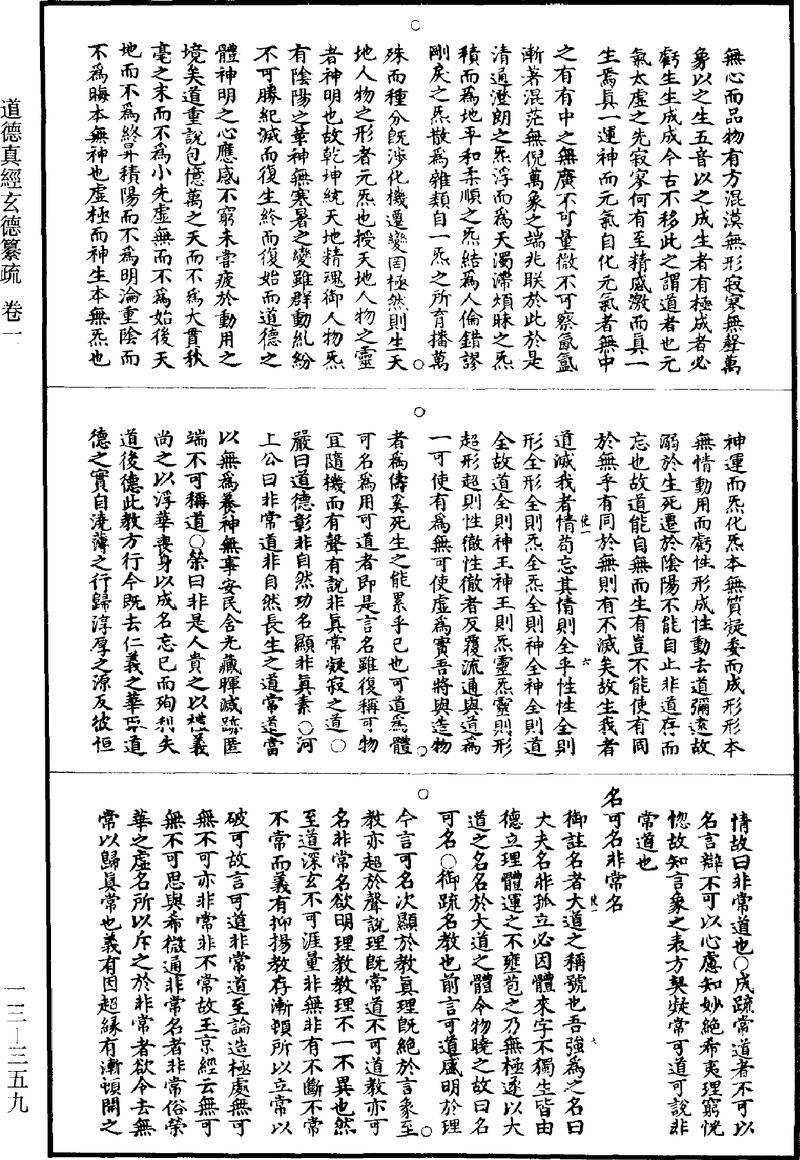 道德真經玄德纂疏 卷一
一三—三五九
無心而品物有方混漠無形寂寞無聲萬
象以之生五音以之成生者有極成者必
虧生生成成今古不移此之謂道者也元
氣太虛之先寂寥何有至精感激而真一
生焉真一運神而元氣自化元氣者無中
之有有中之無廣不可量微不可察氤氳
漸著混茫無倪萬象之端兆朕於此於是
清通澄朗之炁浮而為天濁滯煩昧之炁
積而為地平和柔順之炁結為人倫錯謬
剛戾之炁散為雜類自一炁之所育播萬
殊而種分既涉化機遷變罔極然則生天
地人物之形者元炁也授天地人物之靈
者神明也故乾坤統天地精魂御人物炁
有陰陽之革神無寒暑之變雖群動糺紛
不可勝紀滅而復生終而復始而道德之
體神明之心應感不窮未嘗疲於動用之
境矣道重說包億萬之天而不為大貫秋
毫之末而不為小先虛無而不為始後天
地而不為終昇積陽而不為明淪重陰而
不為晦本無神也虛極而神生本無炁也
神運而炁化炁本無質凝委而成形形本
無情動用而虧性形成性動去道彌遠故
溺於生死遷於陰陽不能自止非道存而
忘也故道能自無而生有豈不能使有同
於無乎有同於無則有不滅矣故生我者
道滅我者情苟忘其情則全乎性性全則
形全形全則炁全炁全則神全神全則道
全故道全則神王神王則炁靈炁靈則形
超形超則性徹性徹者反覆流通與道為
一可使有為無可使虛為實吾將與造物
者為儔奚死生之能累乎已也可道為體
可名為用可道者即是言名雖復稱可物
宜隨機而有聲有說非真常凝寂之道○
嚴曰道德彰非自然功名顯非真素○河
上公曰非常道非自然長生之道常道當
以無為養神無事安民含光藏暉滅跡匿
端不可稱道○榮曰非是人貴之以禮義
尚之以浮華喪身以成名忘己而殉利失
道後德此教方行今既去仁義之華取道
德之實自澆薄之行歸淳厚之源反彼恒
情故曰非常道也○成疏常道者不可以
名言辯不可以心慮知妙絕希夷理窮恍
惚故知言象之表方契凝常可道可說非
常道也
名可名非常名
御註名者大道之稱號也吾強為之名曰
大夫名非孤立必因體來字不獨生皆由
德立理體運之不壅苞之乃無極遂以大
道之名名於大道之體令物曉之故曰名
可名○御疏名教也前言可道盛明於理
今言可名次顯於教真理既絕於言象至
教亦超於聲說理既常道不可道教亦可
名非常名欲明理教教理不一不異也然
至道深玄不可涯量非無非有不斷不常
不常而義有抑揚教存漸頓所以立常以
破可故言可道非常道至論造極處無可
無不可亦非常非不常故玉京經云無可
無不可思與希微通非常名者非常俗榮
華之虛名所以斥之於非常者欲令去無
常以歸真常也義有因超緣有漸頓開之